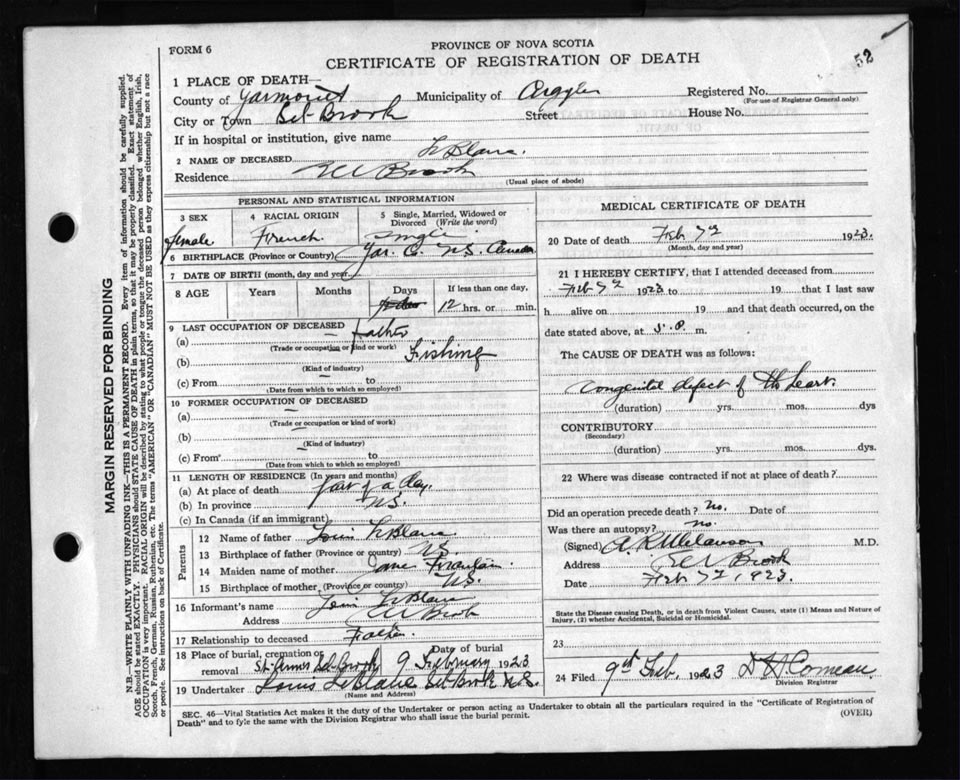 52
FORM 6
PROVINCE OF NOVA SCOTIA
CERTIFICATE OF REGISTRATION OF DEATH
1 PLACE OF DEATH—
County of Yarmouth Municipality of Argyle Registered No.
(For use of Registrar General only)
City or Town Brook Street House No.
If in hospital or institution, give name
2 NAME OF DECEASED LeBlanc.
Residence Brook
(Usual place of abode)
PERSONAL AND STATISTICAL INFORMATION
3 SEX female
4 RACIAL ORIGIN French
5 Single, Married, Widowed or Divorced (Write the word) single
6 BIRTHPLACE (Province or Country) Yar. Co. N.S. Canada
7 DATE OF BIRTH (month, day and year)
8 AGE Years Months Days If less than one day,
12 hrs. or min.
9 LAST OCCUPATION OF DECEASED father
(a)
(Trade or occupation or kind of work)
(b) Fishing
(Kind of industry)
(c) From to
(Date from which to which so employed)
10 FORMER OCCUPATION OF DECEASED
(a)
(Trade or occupation or kind of work)
(b)
(Kind of industry)
(c) From to
(Date from which to which so employed)
11 LENGTH OF RESIDENCE (In years and months)
(a) At place of death part of a day.
(b) In province N.S.
(c) In Canada (if an immigrant)
Parents
12 Name of father Louis LeBlanc
13 Birthplace of father (Province or country) N.S.
14 Maiden name of mother
15 Birthplace of mother (Province or country) N.S.
16 Informant's name Louis LeBlanc
Address Brook
17 Relationship to deceased Father.
18 Place of burial, cremation or removal Brook Date of burial 9 February 1923
19 Undertaker Louis LeBlanc Brook N.S.
(Name and Address)
MEDICAL CERTIFICATE OF DEATH
20 Date of death Feb 7th 1923.
(Month, day and year)
21 I HEREBY CERTIFY, that I attended deceased from
Feb 7th 1923 to 19 that I last saw
h alive on 19 and that death occurred, on the
date stated above, at 5.P. m.
The CAUSE OF DEATH was as follows:
Congenital defect of the heart.
(duration) yrs. mos. dys
CONTRIBUTORY
(Secondary)
(duration) yrs. mos. dys.
22 Where was disease contracted if not at place of death?
Did an operation precede death? No. Date of
Was there an autopsy? no.
(Signed) M.D.
Address Brook
Date Feb 7th, 1923.
State the Disease causing Death, or in death from Violent Causes, state (1) Means and Nature of
Injury, (2) whether Accidental, Suicidal or Homicidal.
23
24 Filed 9th Feb. 1923 Comeau
Division Registrar
SEC. 46—Vital Statistics Act makes it the duty of the Undertaker or person acting as Undertaker to obtain all the particulars required in the "Certificate of Registration of
Death" and to fyle the same with the Division Registrar who shall issue the burial permit.
(OVER)
MARGIN RESERVED FOR BINDING
N.B.—WRITE PLAINLY WITH UNFADING INK—THIS IS A PERMANENT RECORD. Every item of information should be carefully supplied.
AGE should be stated EXACTLY. PHYSICIANS should STATE CAUSE OF DEATH in plain terms, so that it may be properly classified. Exact statement of
OCCUPATION is very important. RACIAL ORIGIN will be described by stating to what people or tongue the deceased person belonged whether English, Irish,
Scotch, French, German, Russian, Ruthenian, etc. The terms "AMERICAN" OR "CANADIAN" MUST NOT BE USED as they express citizenship but not a race
or people. See instructions on back of Certificate.